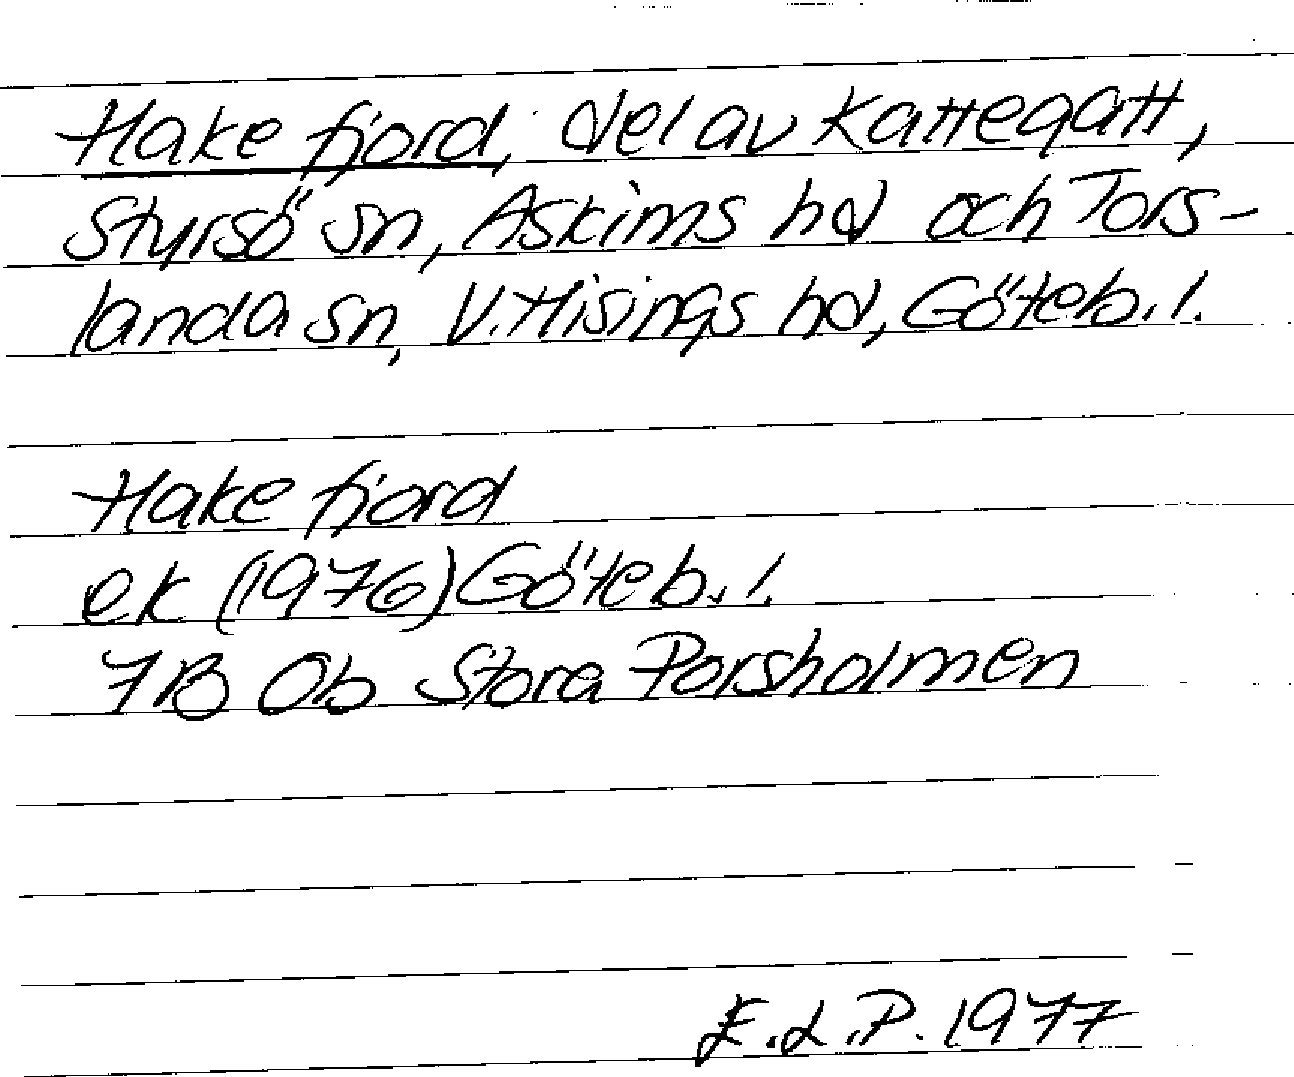 Hake fjord, del av Kattegatt,
Styrsö sn, Askims hd och Tors-
landa sn, V. Hisings hd, Göteb. l.
Hake fjord
ek (1976) Göteb. l.
7B 0b Stora Porsholmen
E.L.P. 1977